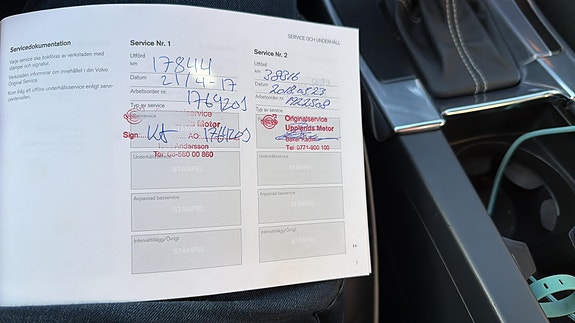 SERVICE OCH UNDERHÅLL
Servicedokumentation
Varje service ska bokföras av verkstaden med
stämpel och signatur.
Verkstaden informerar om innehållet i din Volvo
Original Service.
Kom ihåg att utföra underhållsservice enligt servi-
Service Nr. 1
Utförd
17844
km
21/4-17
Datum
Arbetsorder nr.
1769201
Typ av service
Motor
Sign:
AO
1769201
Andersson
Tel: 08-580 00 860
Underhållsservice
STÄMPEL
Anpassad basservice
STÄMPEL
Intervalltillägg/Övrigt
STÄMPEL
Service Nr. 2
Utförd
km
38816
Datum
Arbetsorder nr.
Typ av service
Originalservice
Upplands Motor
Tel: 0771-900 100
Underhållsservice
STÄMPEL
Anpassad basservice
STÄMPEL
Intervalltillägg/Övrigt
STÄMPEL